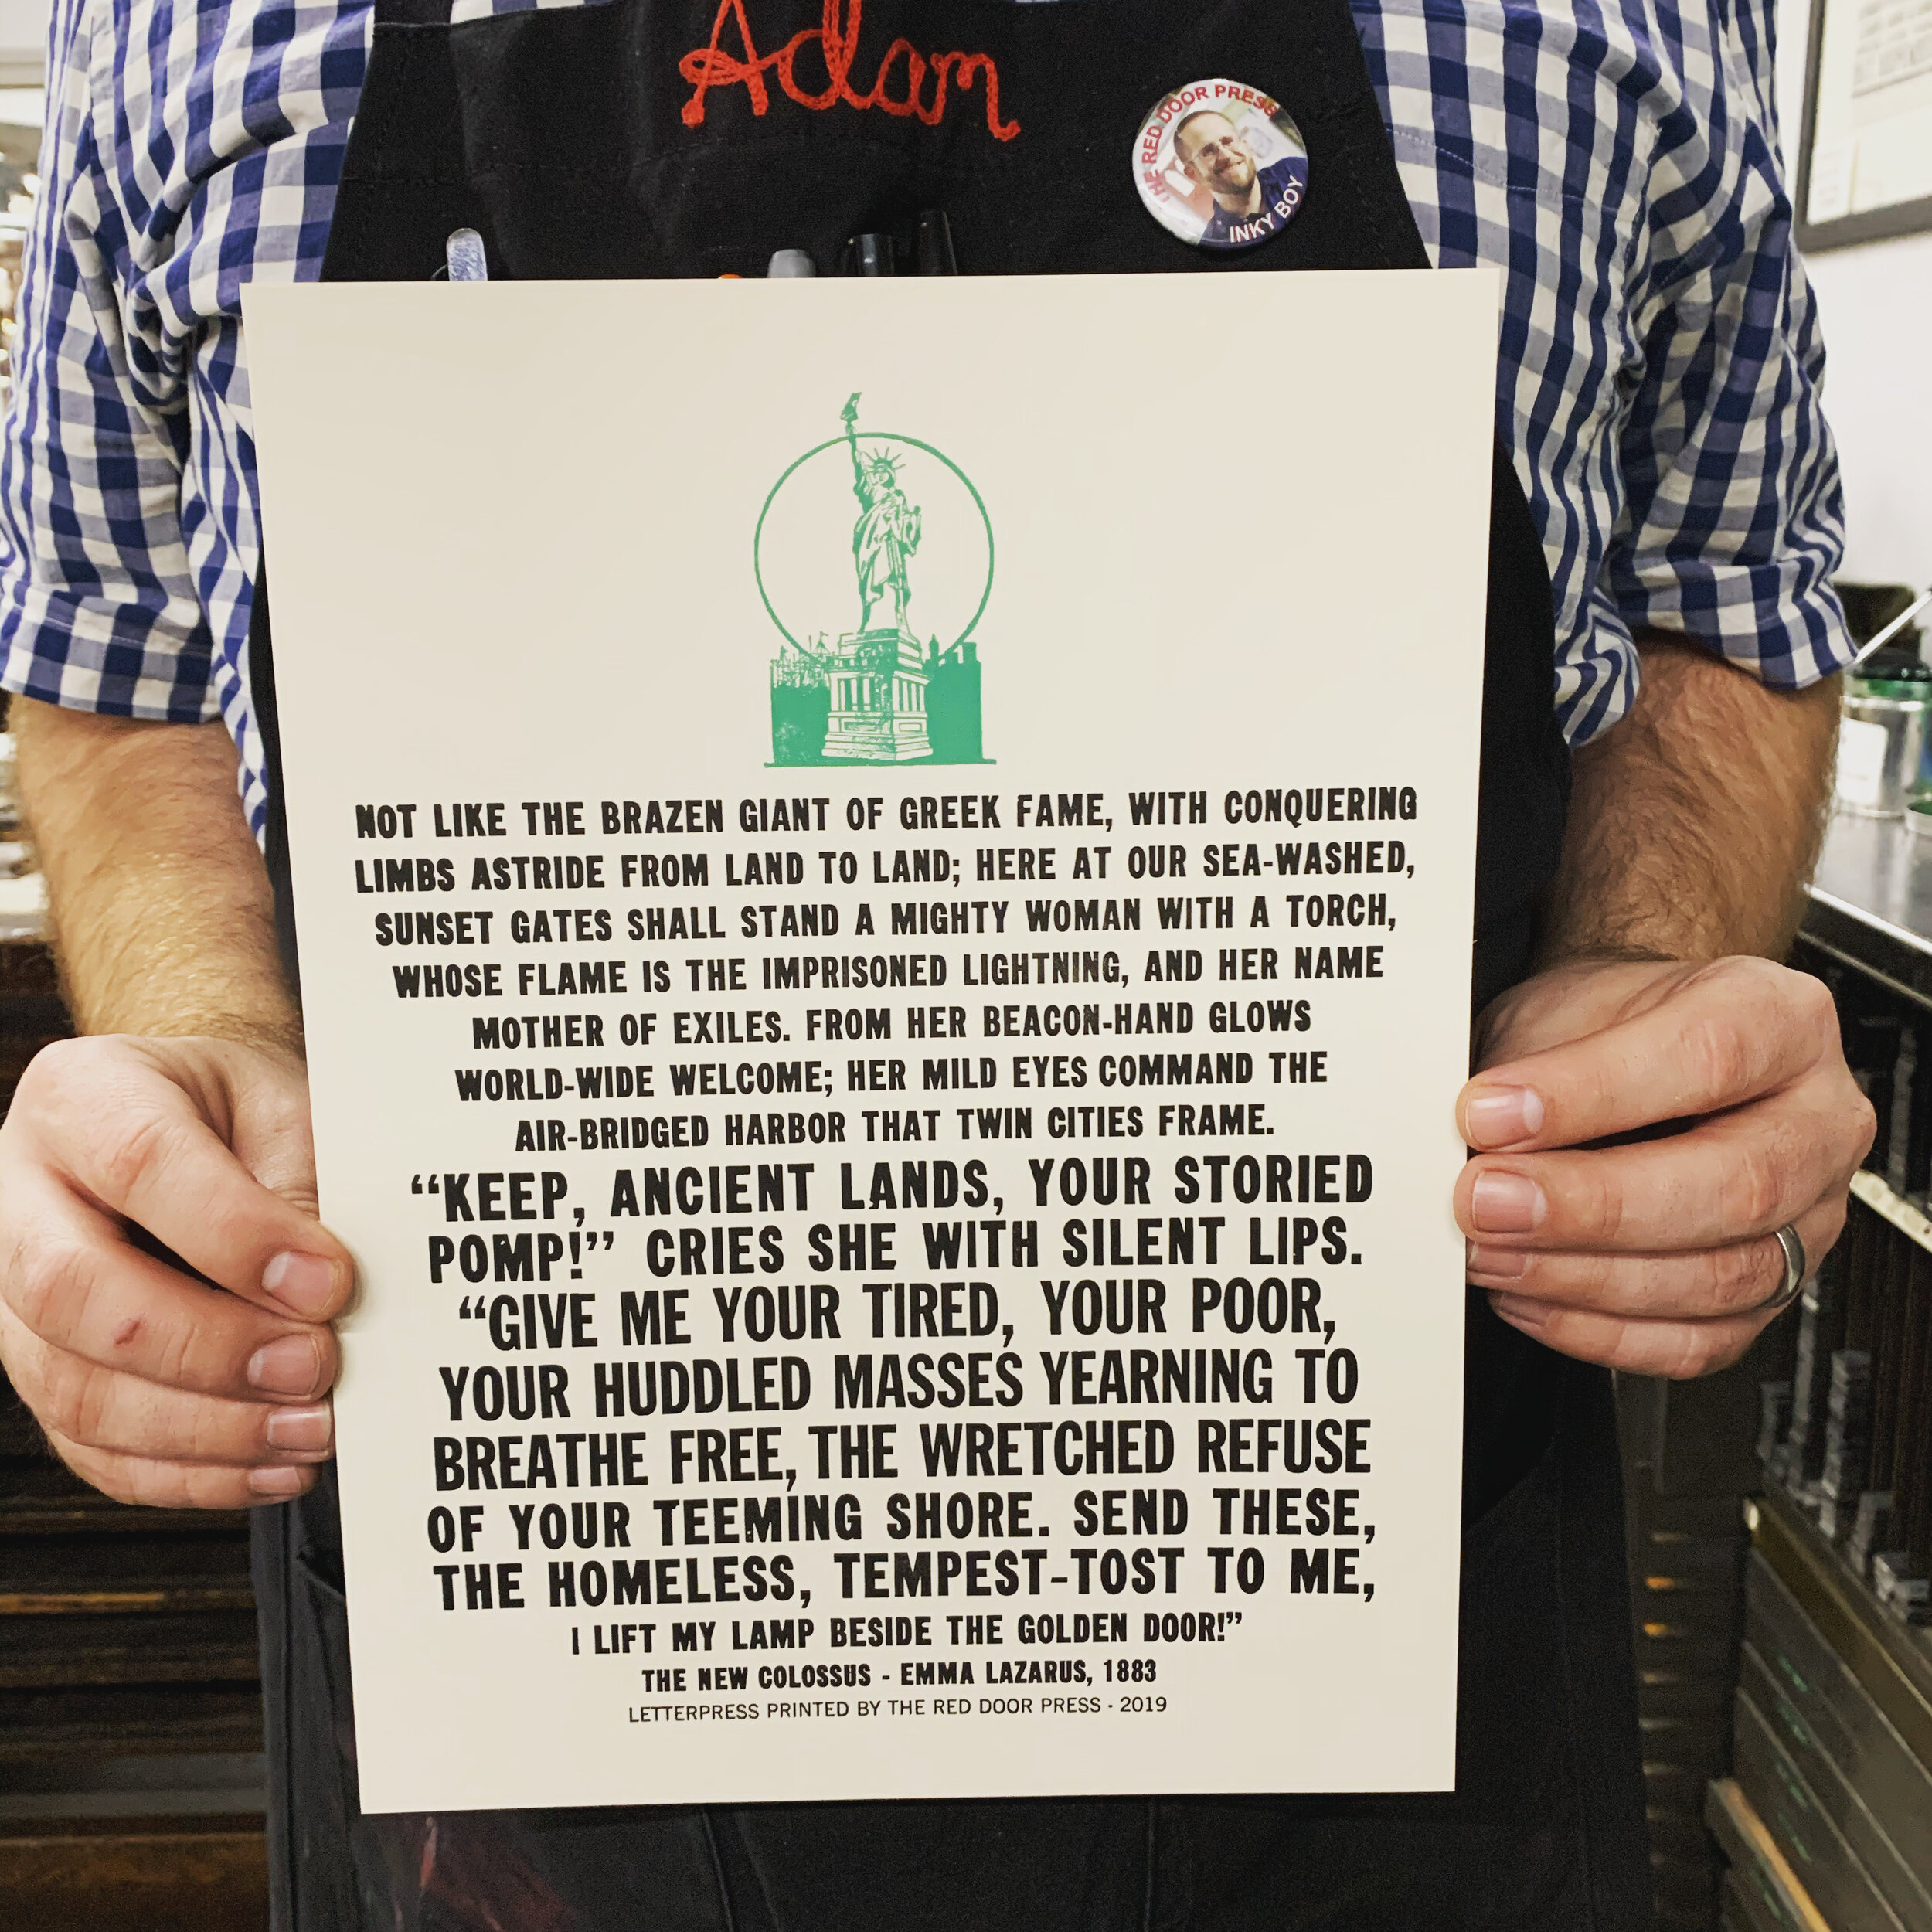 Adam
THE RED DOOR PRESS
INKY BOY
NOT LIKE THE BRAZEN GIANT OF GREEK FAME, WITH CONQUERING
LIMBS ASTRIDE FROM LAND TO LAND; HERE AT OUR SEA-WASHED,
SUNSET GATES SHALL STAND A MIGHTY WOMAN WITH A TORCH,
WHOSE FLAME IS THE IMPRISONED LIGHTNING, AND HER NAME
MOTHER OF EXILES. FROM HER BEACON-HAND GLOWS
WORLD-WIDE WELCOME; HER MILD EYES COMMAND THE
AIR-BRIDGED HARBOR THAT TWIN CITIES FRAME.
“KEEP, ANCIENT LANDS, YOUR STORIED
POMP!” CRIES SHE WITH SILENT LIPS.
“GIVE ME YOUR TIRED, YOUR POOR,
YOUR HUDDLED MASSES YEARNING TO
BREATHE FREE, THE WRETCHED REFUSE
OF YOUR TEEMING SHORE. SEND THESE,
THE HOMELESS, TEMPEST-TOST TO ME,
I LIFT MY LAMP BESIDE THE GOLDEN DOOR!”
THE NEW COLOSSUS - EMMA LAZARUS, 1883
LETTERPRESS PRINTED BY THE RED DOOR PRESS - 2019